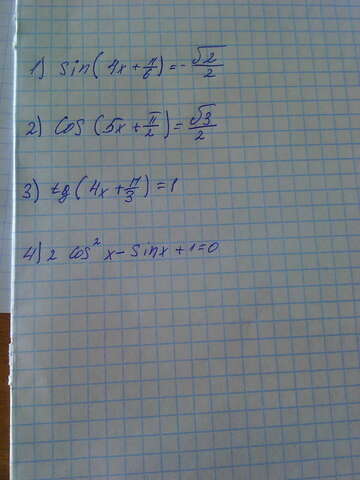 1) sin(4x+π/6)=-√2/2
2) cos(5x+π/2)=√3/2
3) tg(4x+π/3)=1
4) 2 cos²x-sinx+1=0